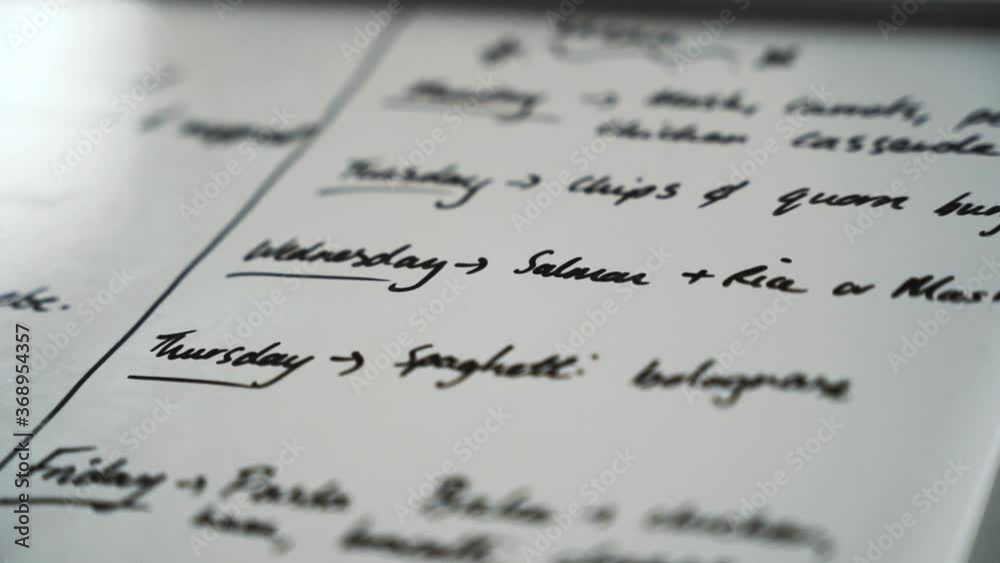 Monday → Mash, carrots, pe
chicken casserole
Thursday → Chips & quorn bur
Wednesday → Salmon + Rice or Mas
Thursday → Spaghetti bolognase
Friday → Pasta Bake - chicken,
ham,
ebc.
Adobe Stock | #368954357